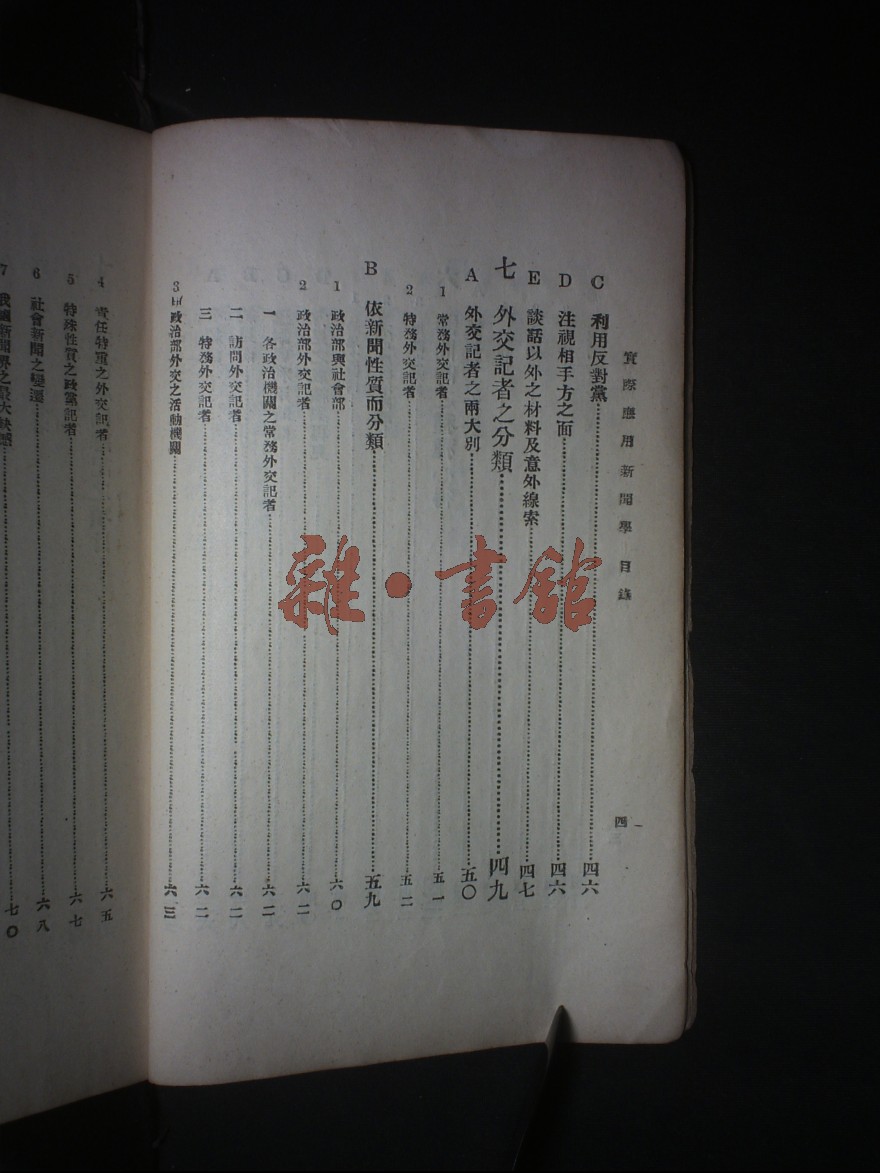 實際應用新聞學 目錄 四
C 利用反對黨……四六
D 注視相手方之面……四六
E 談話以外之材料及意外線索……四七
七 外交記者之分類……四九
A 外交記者之兩大別……五〇
1 常務外交記者……五一
2 特務外交記者……五二
B 依新聞性質而分類……五九
1 政治部與社會部……六〇
2 政治部外交記者……六二
一 各政治機關之常務外交記者……六二
二 訪問外交記者……六二
三 特務外交記者……六二
3 政治部外交之活動機關……六三
4 責任特重之外交記者……六五
5 特殊性質之政黨記者……六七
6 社會新聞之變遷……六八
7 我國新聞界之最大缺憾……七〇
雜·書館